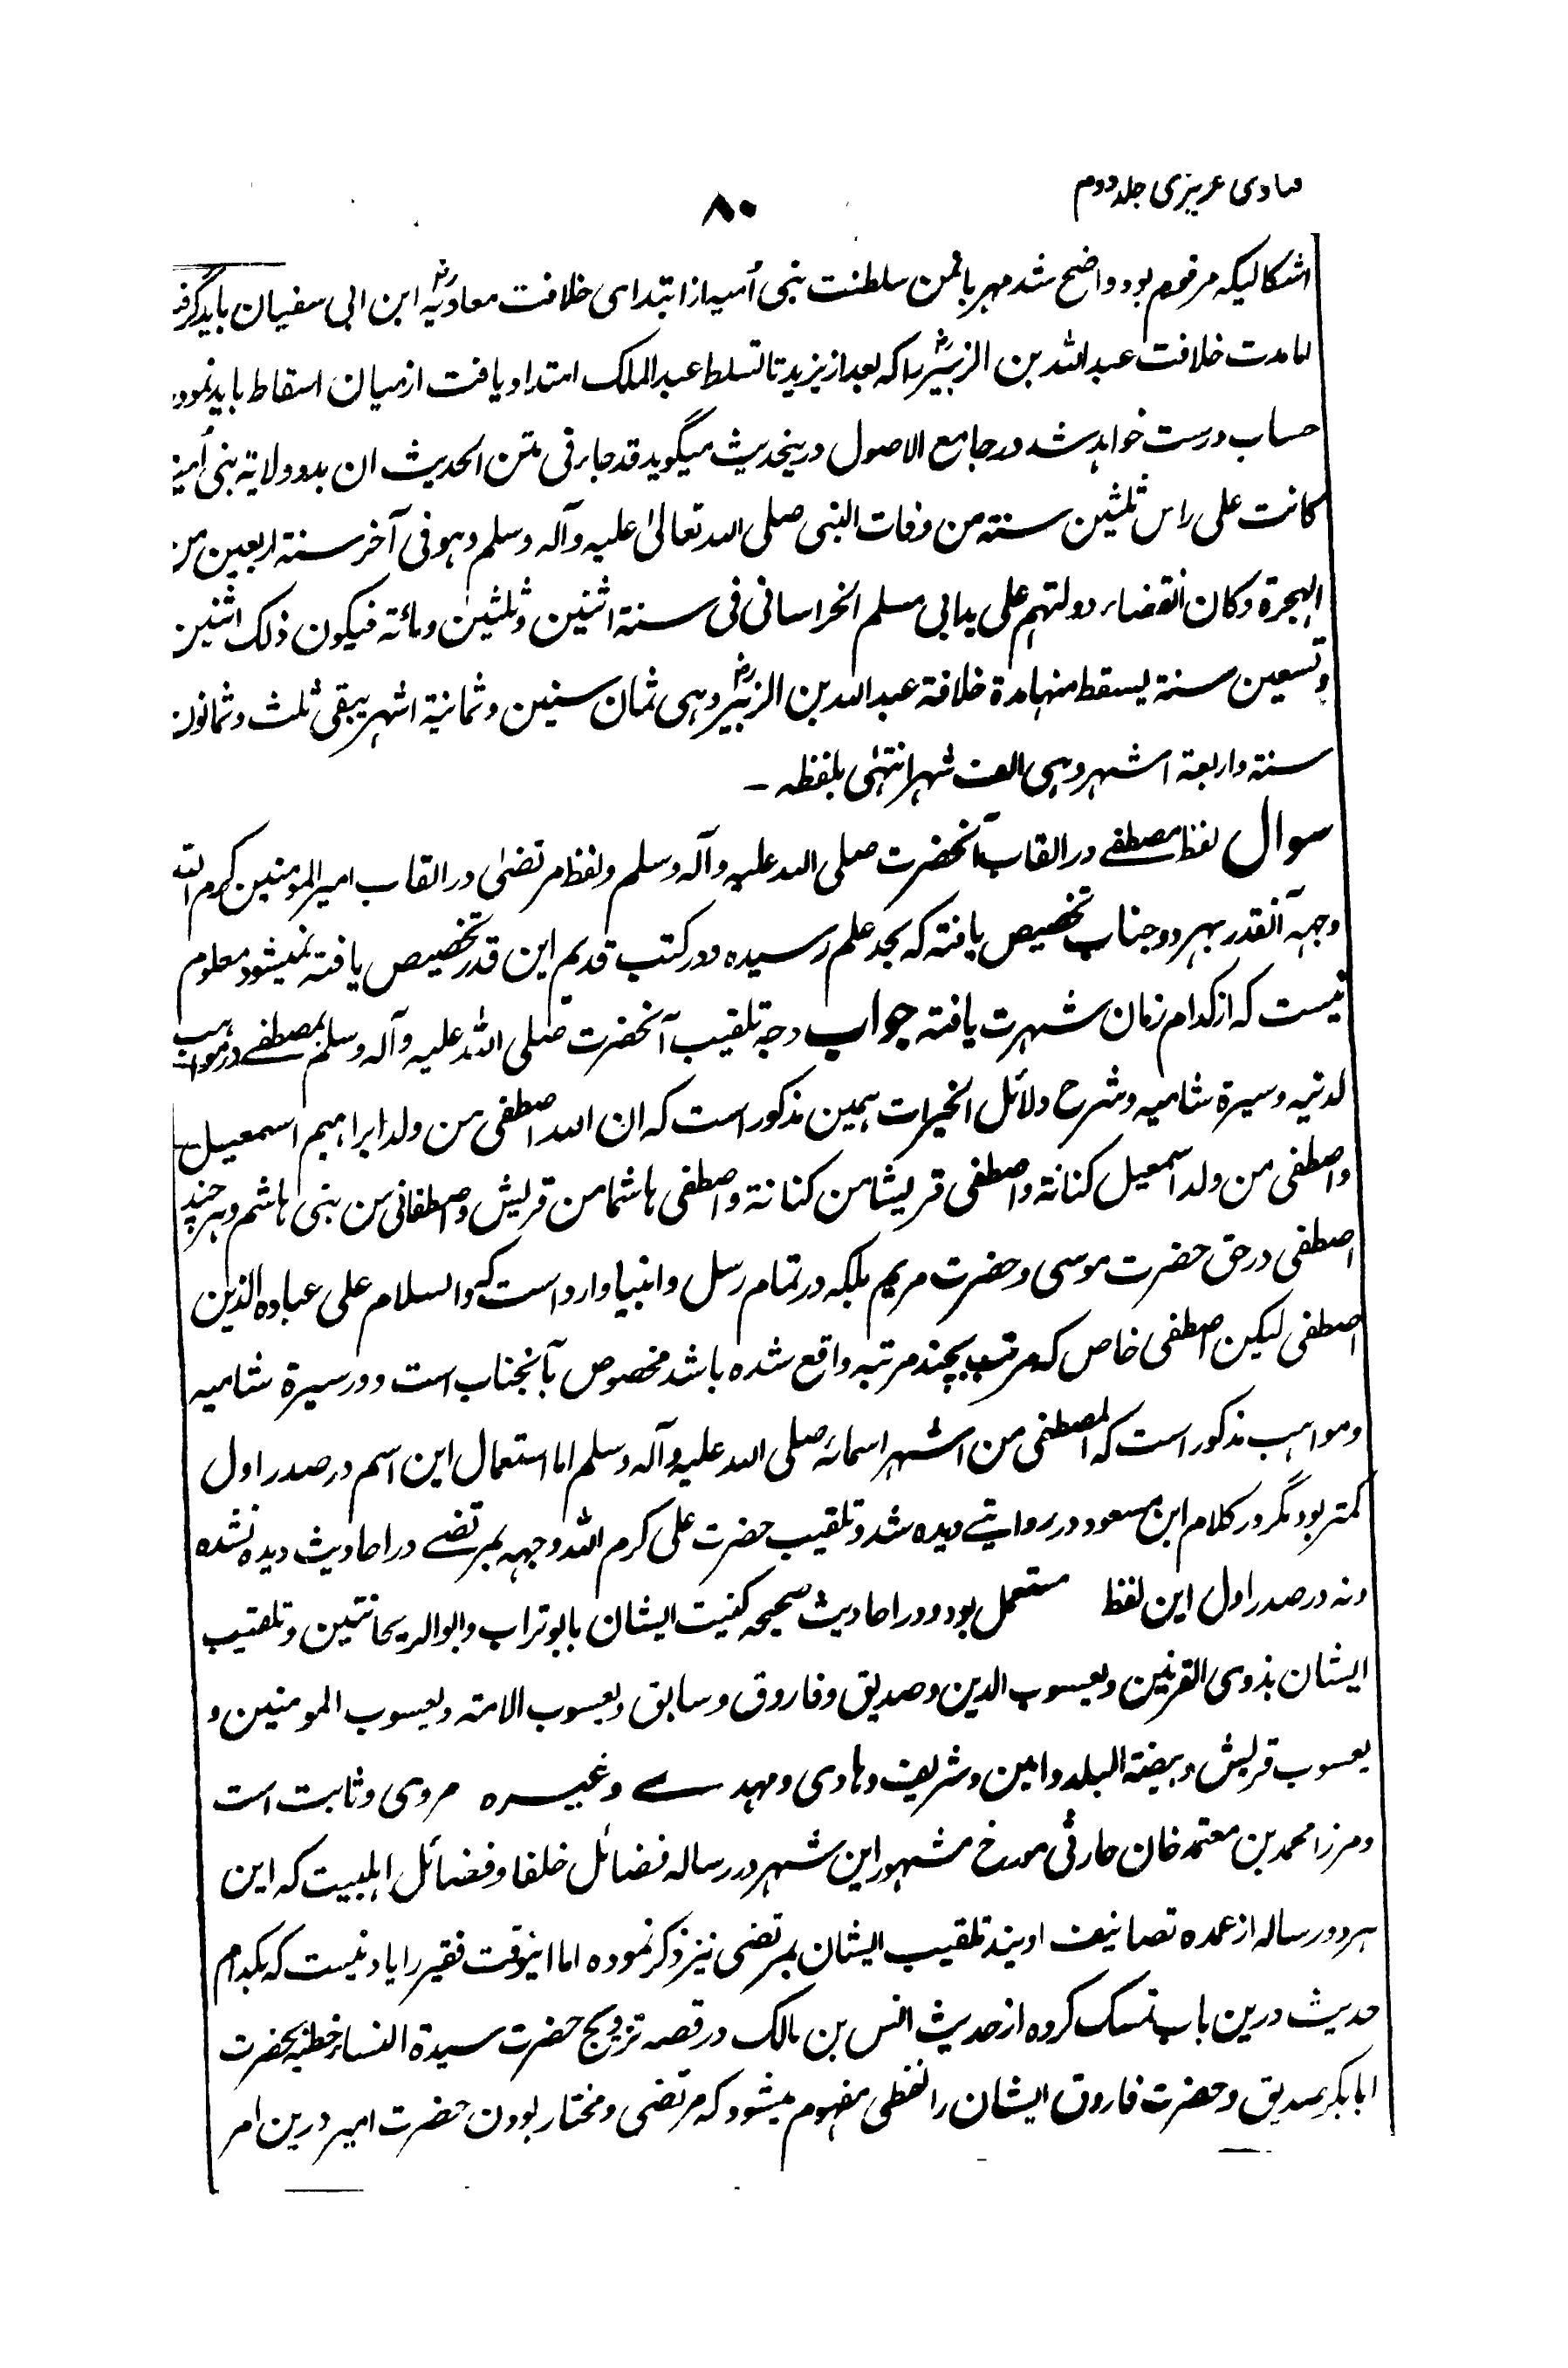 فتاوی عزیزی جلد دوم
۸۰
اشکالیکه مرقوم بود واضح شد مهربان من سلطنت بنی أمیه از ابتدای خلافت معاویهؓ ابن ابی سفیان باید گرفت
اما مدت خلافت عبدالله بن الزبیرؓ را که بعد از یزید تا تسلط عبدالملک امتداد یافت از میان اسقاط باید نمود
حساب درست خواهد شد در جامع الاصول درینحدیث میگوید قد جاء فی متن الحدیث ان بدو ولایة بنی أمیة
کانت علی راس ثلثین سنة من وفات النبی صلی الله تعالیٰ علیه وآله وسلم وهو فی آخر سنة اربعین من
الهجرة وکان انقضاء دولتهم علی ید ابی مسلم الخراسانی فی سنة اثنین وثلثین ومائة فیکون ذلک اثنین
وتسعین سنة یسقط منها مدة خلافة عبدالله بن الزبیرؓ وهی ثمان سنین وثمانیة اشهر یبقی ثلث وثمانون
سنة واربعة اشهر وهی الف شهر انتهیٰ بلفظه ۔
سوال لفظ مصطفے در القاب آنحضرت صلی الله علیه وآله وسلم ولفظ مرتضیٰ در القاب امیر المومنین کرم الله
وجهه آنقدر بهر دو جناب تخصیص یافته که بحد علم رسیده ودر کتب قدیم این قدر تخصیص یافته نمیشود معلوم
نیست که از کدام زمان شهرت یافته جواب وجه تلقیب آنحضرت صلی الله علیه وآله وسلم بمصطفے در مواهب
لدنیه وسیرة شامیه وشرح دلائل الخیرات همین مذکور است که ان الله اصطفی من ولد ابراهیم اسمعیل
واصطفی من ولد اسمعیل کنانة واصطفی قریشا من کنانة واصطفی هاشما من قریش واصطفانی من بنی هاشم وهر چند
اصطفی در حق حضرت موسی وحضرت مریم بلکه در تمام رسل وانبیا وارد است که والسلام علی عباده الذین
اصطفی لیکن اصطفی خاص که مرتب بچند مرتبه واقع شده باشد مخصوص بآنجناب است ودر سیرة شامیه
ومواهب مذکور است که المصطفی من اشهر اسمائه صلی الله علیه وآله وسلم اما استعمال این اسم در صدر اول
کمتر بود مگر در کلام ابن مسعود در روایتے دیده شد وتلقیب حضرت علی کرم الله وجهه بمرتضے در احادیث دیده نشده
ونه در صدر اول این لفظ مستعمل بود ودر احادیث صحیحه کنیت ایشان بابوتراب وابوالریحانتین وتلقیب
ایشان بذوی القرنین ویعسوب الدین وصدیق وفاروق وسابق ویعسوب الامة ویعسوب المومنین و
یعسوب قریش وبیضة البلد وامین وشریف وهادی ومهدے وغیره مروی وثابت است
ومرزا محمد بن معتمد خان حارثی مورخ مشهور این شهر در رساله فضائل خلفا وفضائل اهلبیت که این
هر دو رساله از عمده تصانیف اویند تلقیب ایشان بمرتضی نیز ذکر نموده اما اینوقت فقیر را یاد نیست که بکدام
حدیث درین باب تمسک کرده از حدیث انس بن مالک در قصه تزویج حضرت سیدة النساء خطبه حضرت
ابابکر صدیق وحضرت فاروق ایشان را لفظی مفهوم میشود که مرتضی ومختار بودن حضرت امیر درین امر